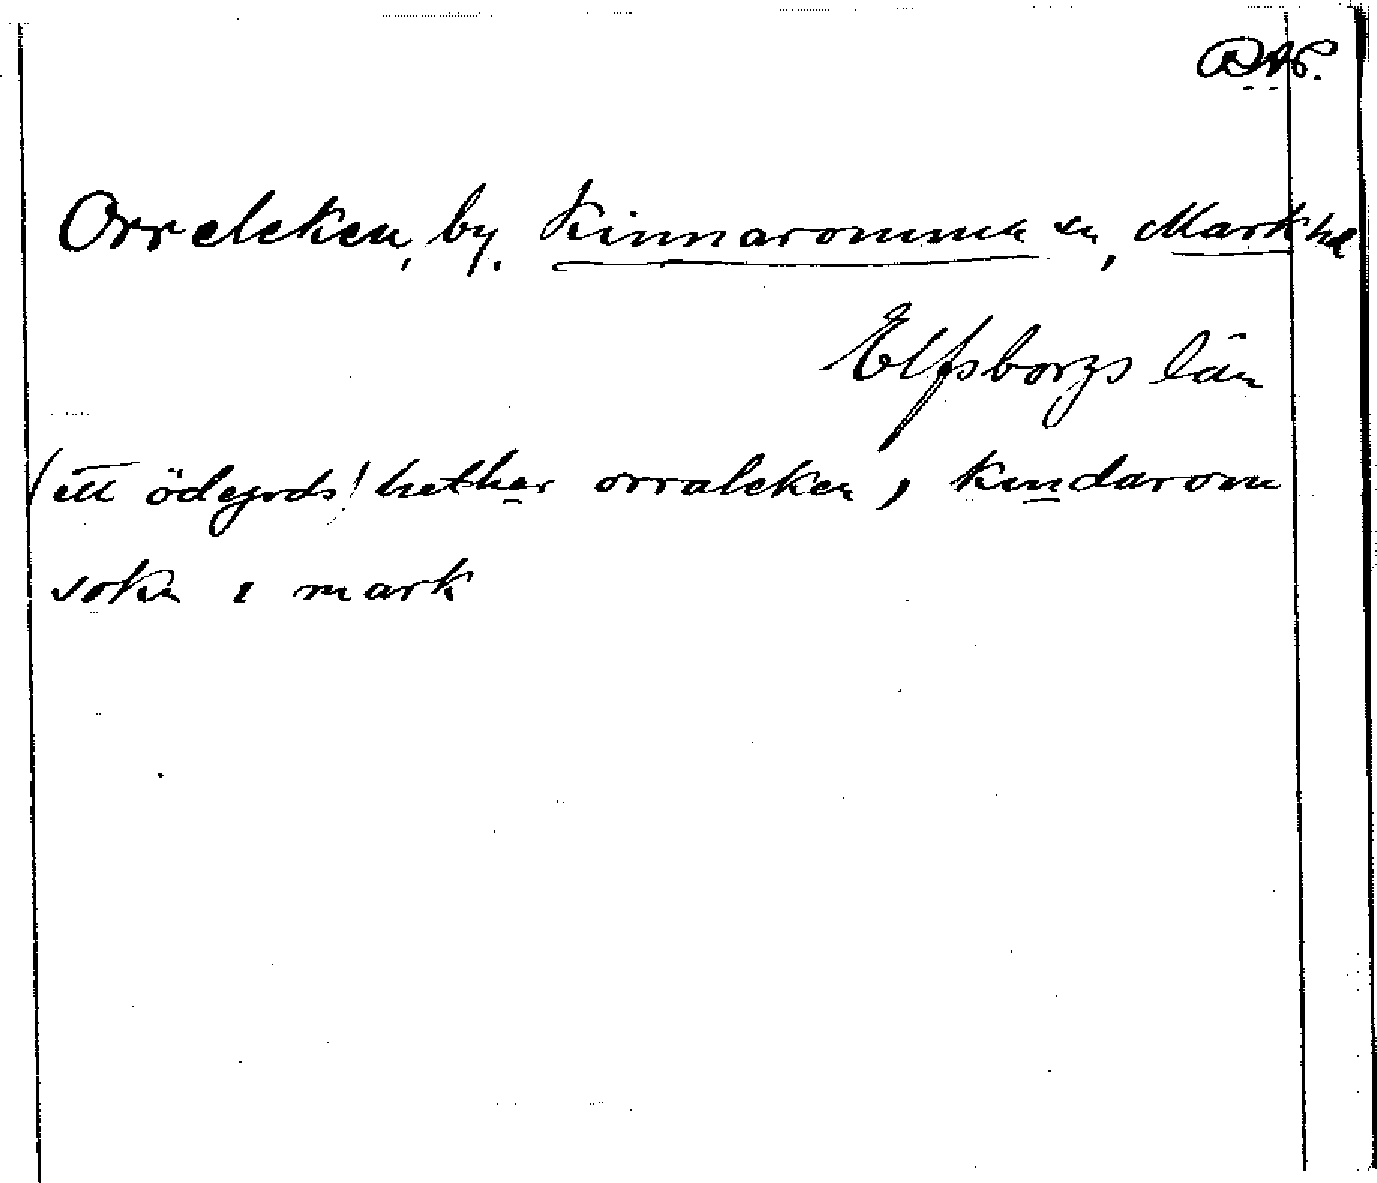 Orreleken, by. Kinnaromma sn, Mark hd
Elfsborgs län
(ett ödegrds! hether orraleken, kindarom
sokn i mark